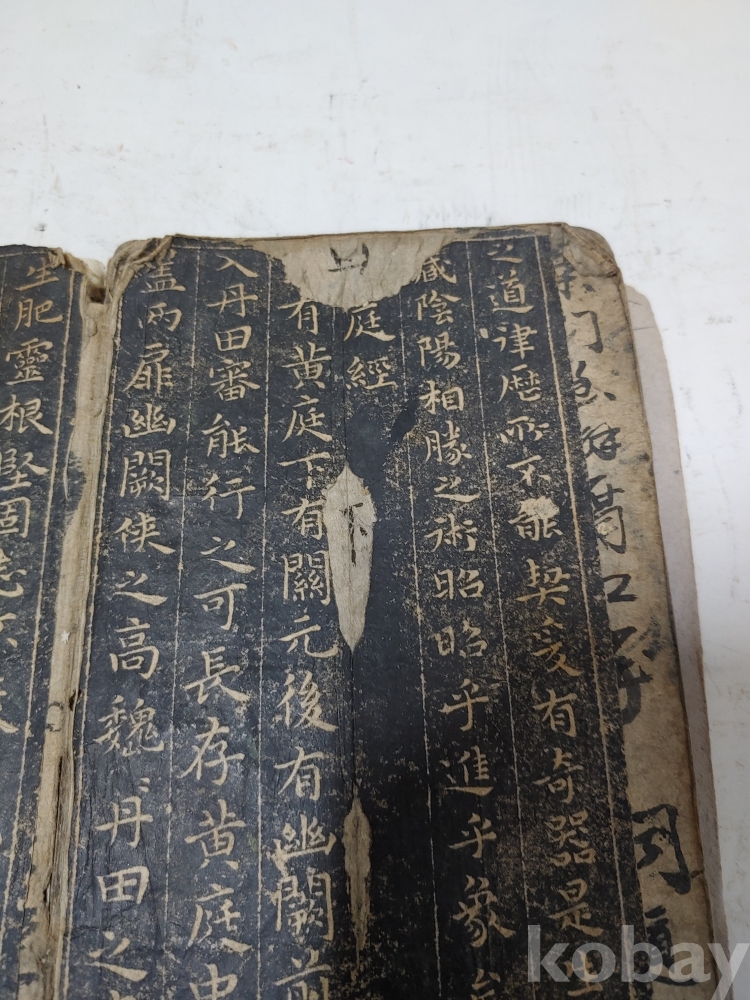 之道律厯所不能契爰有奇器是
藏陰陽相勝之術昭昭乎進乎象
庭經
下
有黄庭下有關元後有幽闕前
入丹田審能行之可長存黄庭中
盖兩扉幽闕俠之高魏〻丹田之
生肥靈根堅固志
kobay